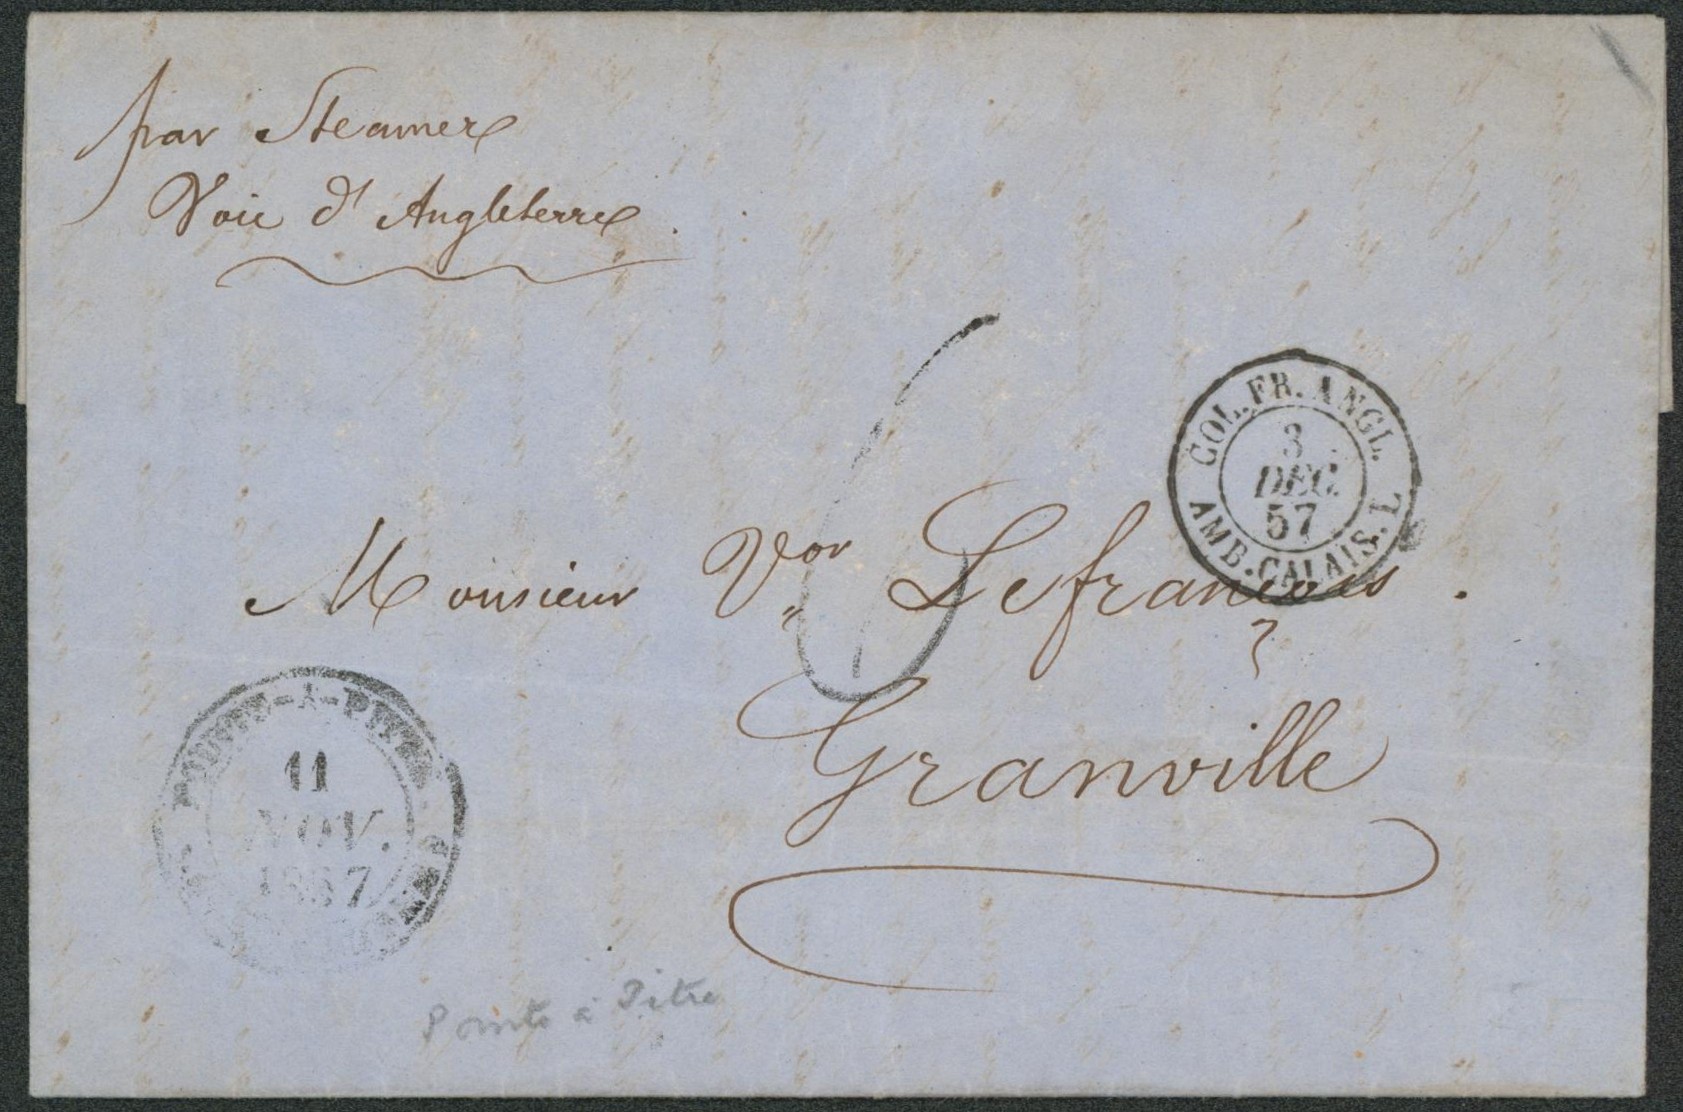 par Steamer
Voie d'Angleterre
COL. FR. ANGL.
3
DEC.
57
AMB. CALAIS. L
6
Monsieur Vor Lefrançois.
Granville
POINTE-A-PITRE
11
NOV.
1857
Pointe à Pitre